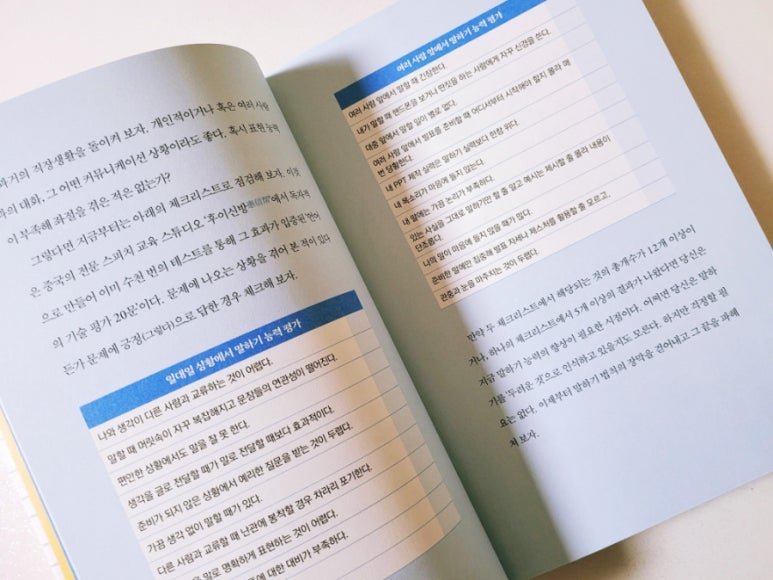 과거의 직장생활을 돌이켜 보자. 개인적이거나 혹은 여러 사람
의 대화, 그 어떤 커뮤니케이션 상황이라도 좋다. 혹시 표현 능력
이 부족해 좌절을 겪은 적은 없는가?
그렇다면 지금부터는 아래의 체크리스트로 점검해 보자. 이것
은 중국의 전문 스피치 교육 스튜디오 '루이신방'에서 독자적
으로 만들어 이미 수천 번의 테스트를 통해 그 효과가 입증된 '언어
의 기술 평가 20문'이다. 문제에 나오는 상황을 겪어 본 적이 있다
든가 문제에 긍정(그렇다)으로 답한 경우 체크해 보자.
일대일 상황에서 말하기 능력 평가
나와 생각이 다른 사람과 교류하는 것이 어렵다.
말할 때 머릿속이 자꾸 복잡해지고 문장들의 연관성이 떨어진다.
편안한 상황에서도 말을 잘 못 한다.
생각을 글로 전달할 때가 말로 전달할 때보다 효과적이다.
준비가 되지 않은 상황에서 예리한 질문을 받는 것이 두렵다.
가끔 생각 없이 말할 때가 있다.
다른 사람과 교류할 때 난관에 봉착할 경우 차라리 포기한다.
을 말로 명확하게 표현하는 것이 어렵다.
에 대한 대비가 부족하다.
여러 사람 앞에서 말하기 능력 평가
여러 사람 앞에서 말할 때 긴장한다.
내가 말할 때 핸드폰을 보거나 딴짓을 하는 사람에게 자꾸 신경을 쓴다.
대중 앞에서 말할 일이 별로 없다.
여러 사람 앞에서 발표를 준비할 때 어디서부터 시작해야 할지 몰라 매
번 당황한다.
내 PPT 제작 실력은 말하기 실력보다 한참 위다.
내 목소리가 마음에 들지 않는다.
내 말에는 가끔 논리가 부족하다.
있는 사실을 그대로 말하기만 할 줄 알고 예시는 제시할 줄 몰라 내용이
단조롭다.
나의 말이 마음에 들지 않을 때가 많다.
준비한 말에만 집중해 발표 자세나 제스처를 활용할 줄 모르고,
관중과 눈을 마주치는 것이 두렵다.
만약 두 체크리스트에서 해당되는 것의 총개수가 12개 이상이
거나, 하나의 체크리스트에서 5개 이상의 결과가 나왔다면 당신은
지금 말하기 능력의 향상이 필요한 시점이다. 어쩌면 당신은 말하
기를 '두려운 것'으로 인식하고 있을지도 모른다. 하지만 걱정할 필
요는 없다. 이제부터 말하기 법칙의 장막을 걷어내고 그 끝을 파헤
쳐 보자.